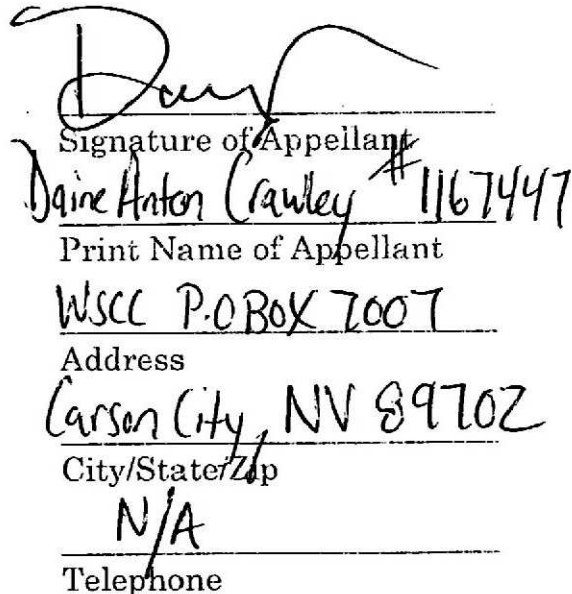 Signature of Appellant
Daine Anton Crawley # 1167447
Print Name of Appellant
WSCC P.O BOX 7007
Address
Carson City, NV 89702
City/State/Zip
N/A
Telephone